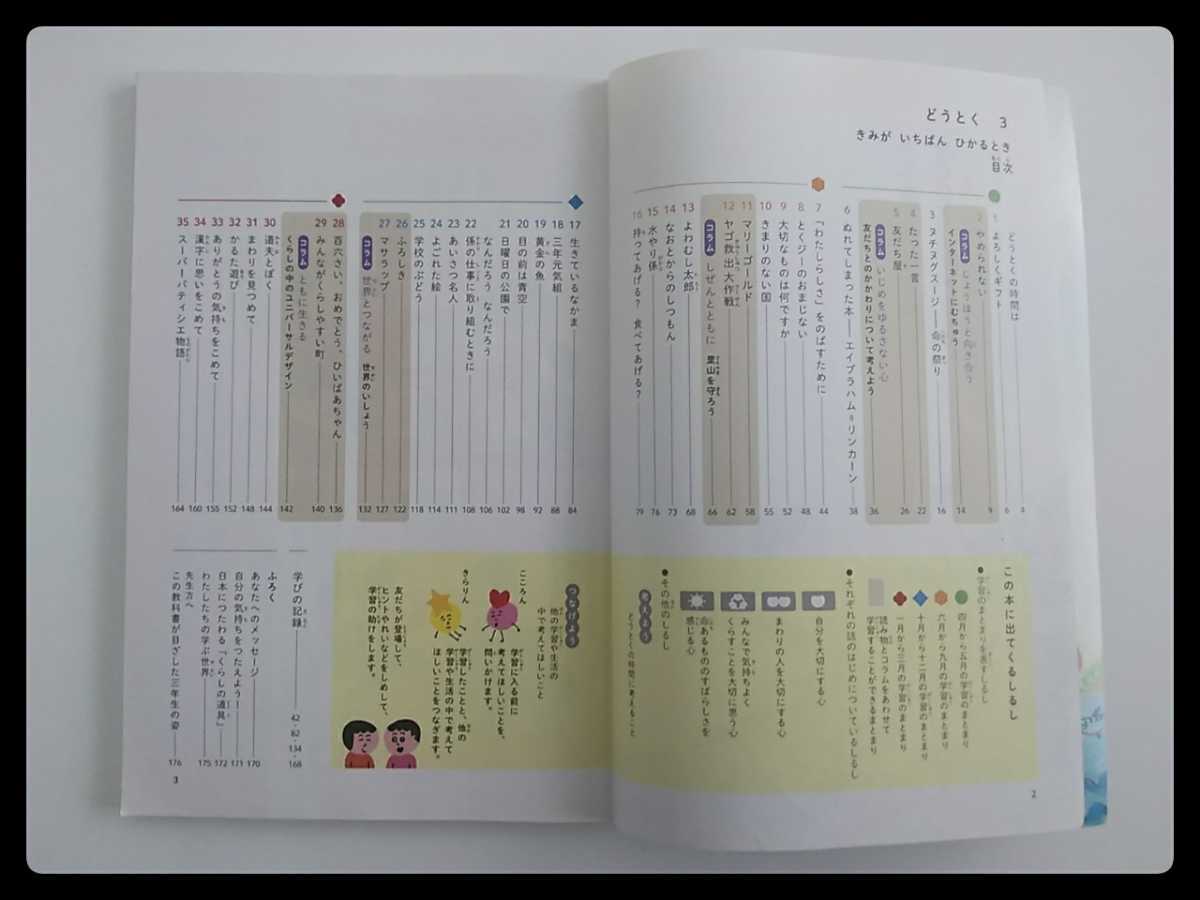 どうとく 3
きみが いちばん ひかるとき
目次
どうとくの時間は 4
1 よろしくギフト 6
2 やめられない 9
コラム じょうほうと向き合う
インターネットにむちゅう 14
3 ヌチヌグスージ――命の祭り 16
4 たった一言 22
5 友だち屋 26
コラム いじめをゆるさない心
友だちとのかかわりについて考えよう 36
6 ぬれてしまった本――エイブラハム=リンカーン 38
7 「わたしらしさ」をのばすために 44
8 とくジーのおまじない 48
9 大切なものは何ですか 52
10 きまりのない国 55
11 マリーゴールド 58
12 ヤゴ救出大作戦 62
コラム しぜんとともに 里山を守ろう 66
13 よわむし太郎 68
14 なおとからのしつもん 73
15 水やり係 76
16 持ってあげる? 食べてあげる? 79
この本に出てくるしるし
●学習のまとまりを表すしるし
四月から五月の学習のまとまり
六月から九月の学習のまとまり
十月から十二月の学習のまとまり
一月から三月の学習のまとまり
読み物とコラムをあわせて
学習することができるまとまり
●それぞれの話のはじめについているしるし
自分を大切にする心
まわりの人を大切にする心
みんなで気持ちよく
くらすことを大切に思う心
命あるもののすばらしさを
感じる心
●その他のしるし
考えよう
どうとくの時間に考えること
2
17 生きているなかま 84
18 三年元気組 88
19 黄金の魚 92
20 目の前は青空 98
21 日曜日の公園で 102
なんだろう なんだろう 106
22 係の仕事に取り組むときに 108
23 あいさつ名人 111
24 よごれた絵 114
25 学校のぶどう 118
26 ふろしき 122
27 マサラップ 127
コラム 世界とつながる 世界のいしょう 132
28 百六さい、おめでとう、ひいばあちゃん 136
29 みんながくらしやすい町 140
コラム ともに生きる
くらしの中のユニバーサルデザイン 142
30 道夫とぼく 144
31 まわりを見つめて 148
32 かるた遊び 152
33 ありがとうの気持ちをこめて 155
34 漢字に思いをこめて 160
35 スーパーパティシエ物語 164
つなげよう
他の学習や生活の
中で考えてほしいこと
こころん
学習に入る前に
考えてほしいことを、
問いかけます。
きらりん
学習したことと、他の
学習や生活の中で考えて
ほしいことをつなぎます。
友だちが登場して、
ヒントやれいなどをしめして、
学習の助けをします。
学びの記録 42・82・134・168
ふろく
あなたへのメッセージ 170
自分の気持ちをつたえよう! 171
日本につたわる「くらしの道具」 172
わたしたちの学ぶ世界 175
先生方へ
この教科書が目ざした三年生の姿 176
3